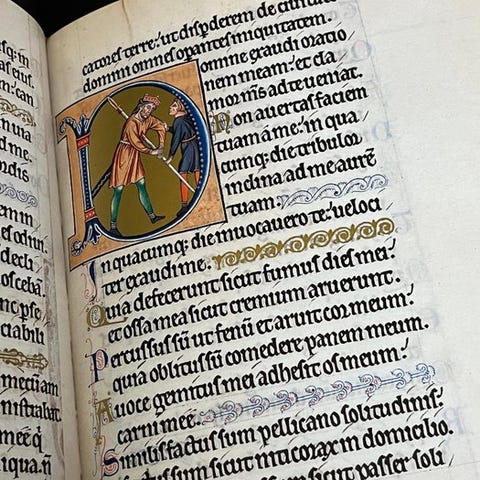 in uia
em in
mee q̄
catores terre: ut disperderem de ciuitate
domini omnes opantes iniquitatem.
Domine exaudi oratio
nem meam: et cla
mor m̄s ad te ueniat.
Non auertas faciem
tuam a me: in qua
cumq; die tribulor
inclina ad me aurē
tuam.
In quacumq; die inuocauero te: veloci
ter exaudi me.
Quia defecerunt sicut fumus dies mei:
et ossa mea sicut cremium aruerunt.
Percussus sū ut fenū et aruit cor meum:
quia oblitus sū comedere panem meum.
A uoce gemitus mei adhesit os meum:
carni mee.
Similis factus sum pellicano solitudinis:
factus sum sicut nicticorax in domicilio.
sicut passer soli